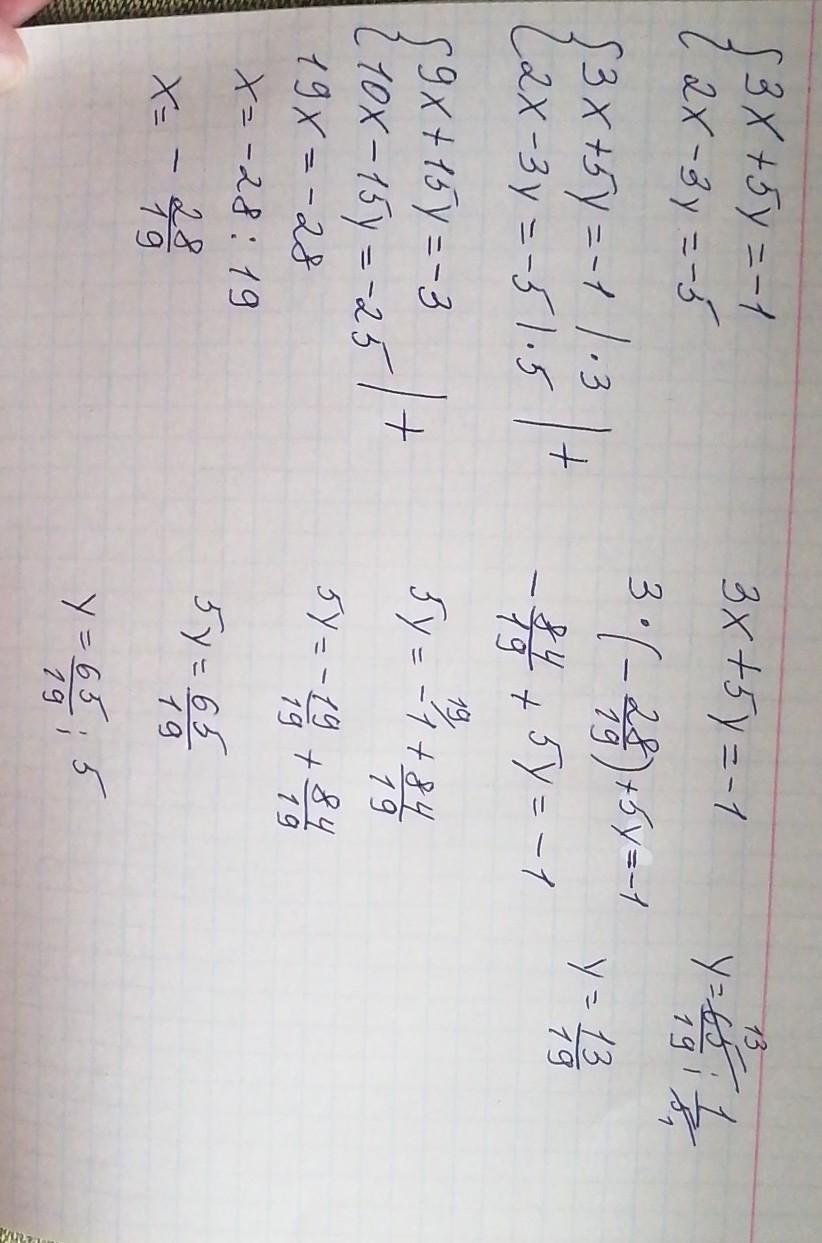 { 3x + 5y = -1
2x - 3y = -5
{ 3x + 5y = -1 | · 3
2x - 3y = -5 | · 5 | +
{ 9x + 15y = -3
10x - 15y = -25 | +
19x = -28
x = -28 : 19
x = - 28/19
3x + 5y = -1
3 · (- 28/19) + 5y = -1
- 84/19 + 5y = -1
19/
5y = -1 + 84/19
5y = - 19/19 + 84/19
5y = 65/19
y = 65/19 : 5
13
y = 65/19 : 1/5 1
y = 13/19